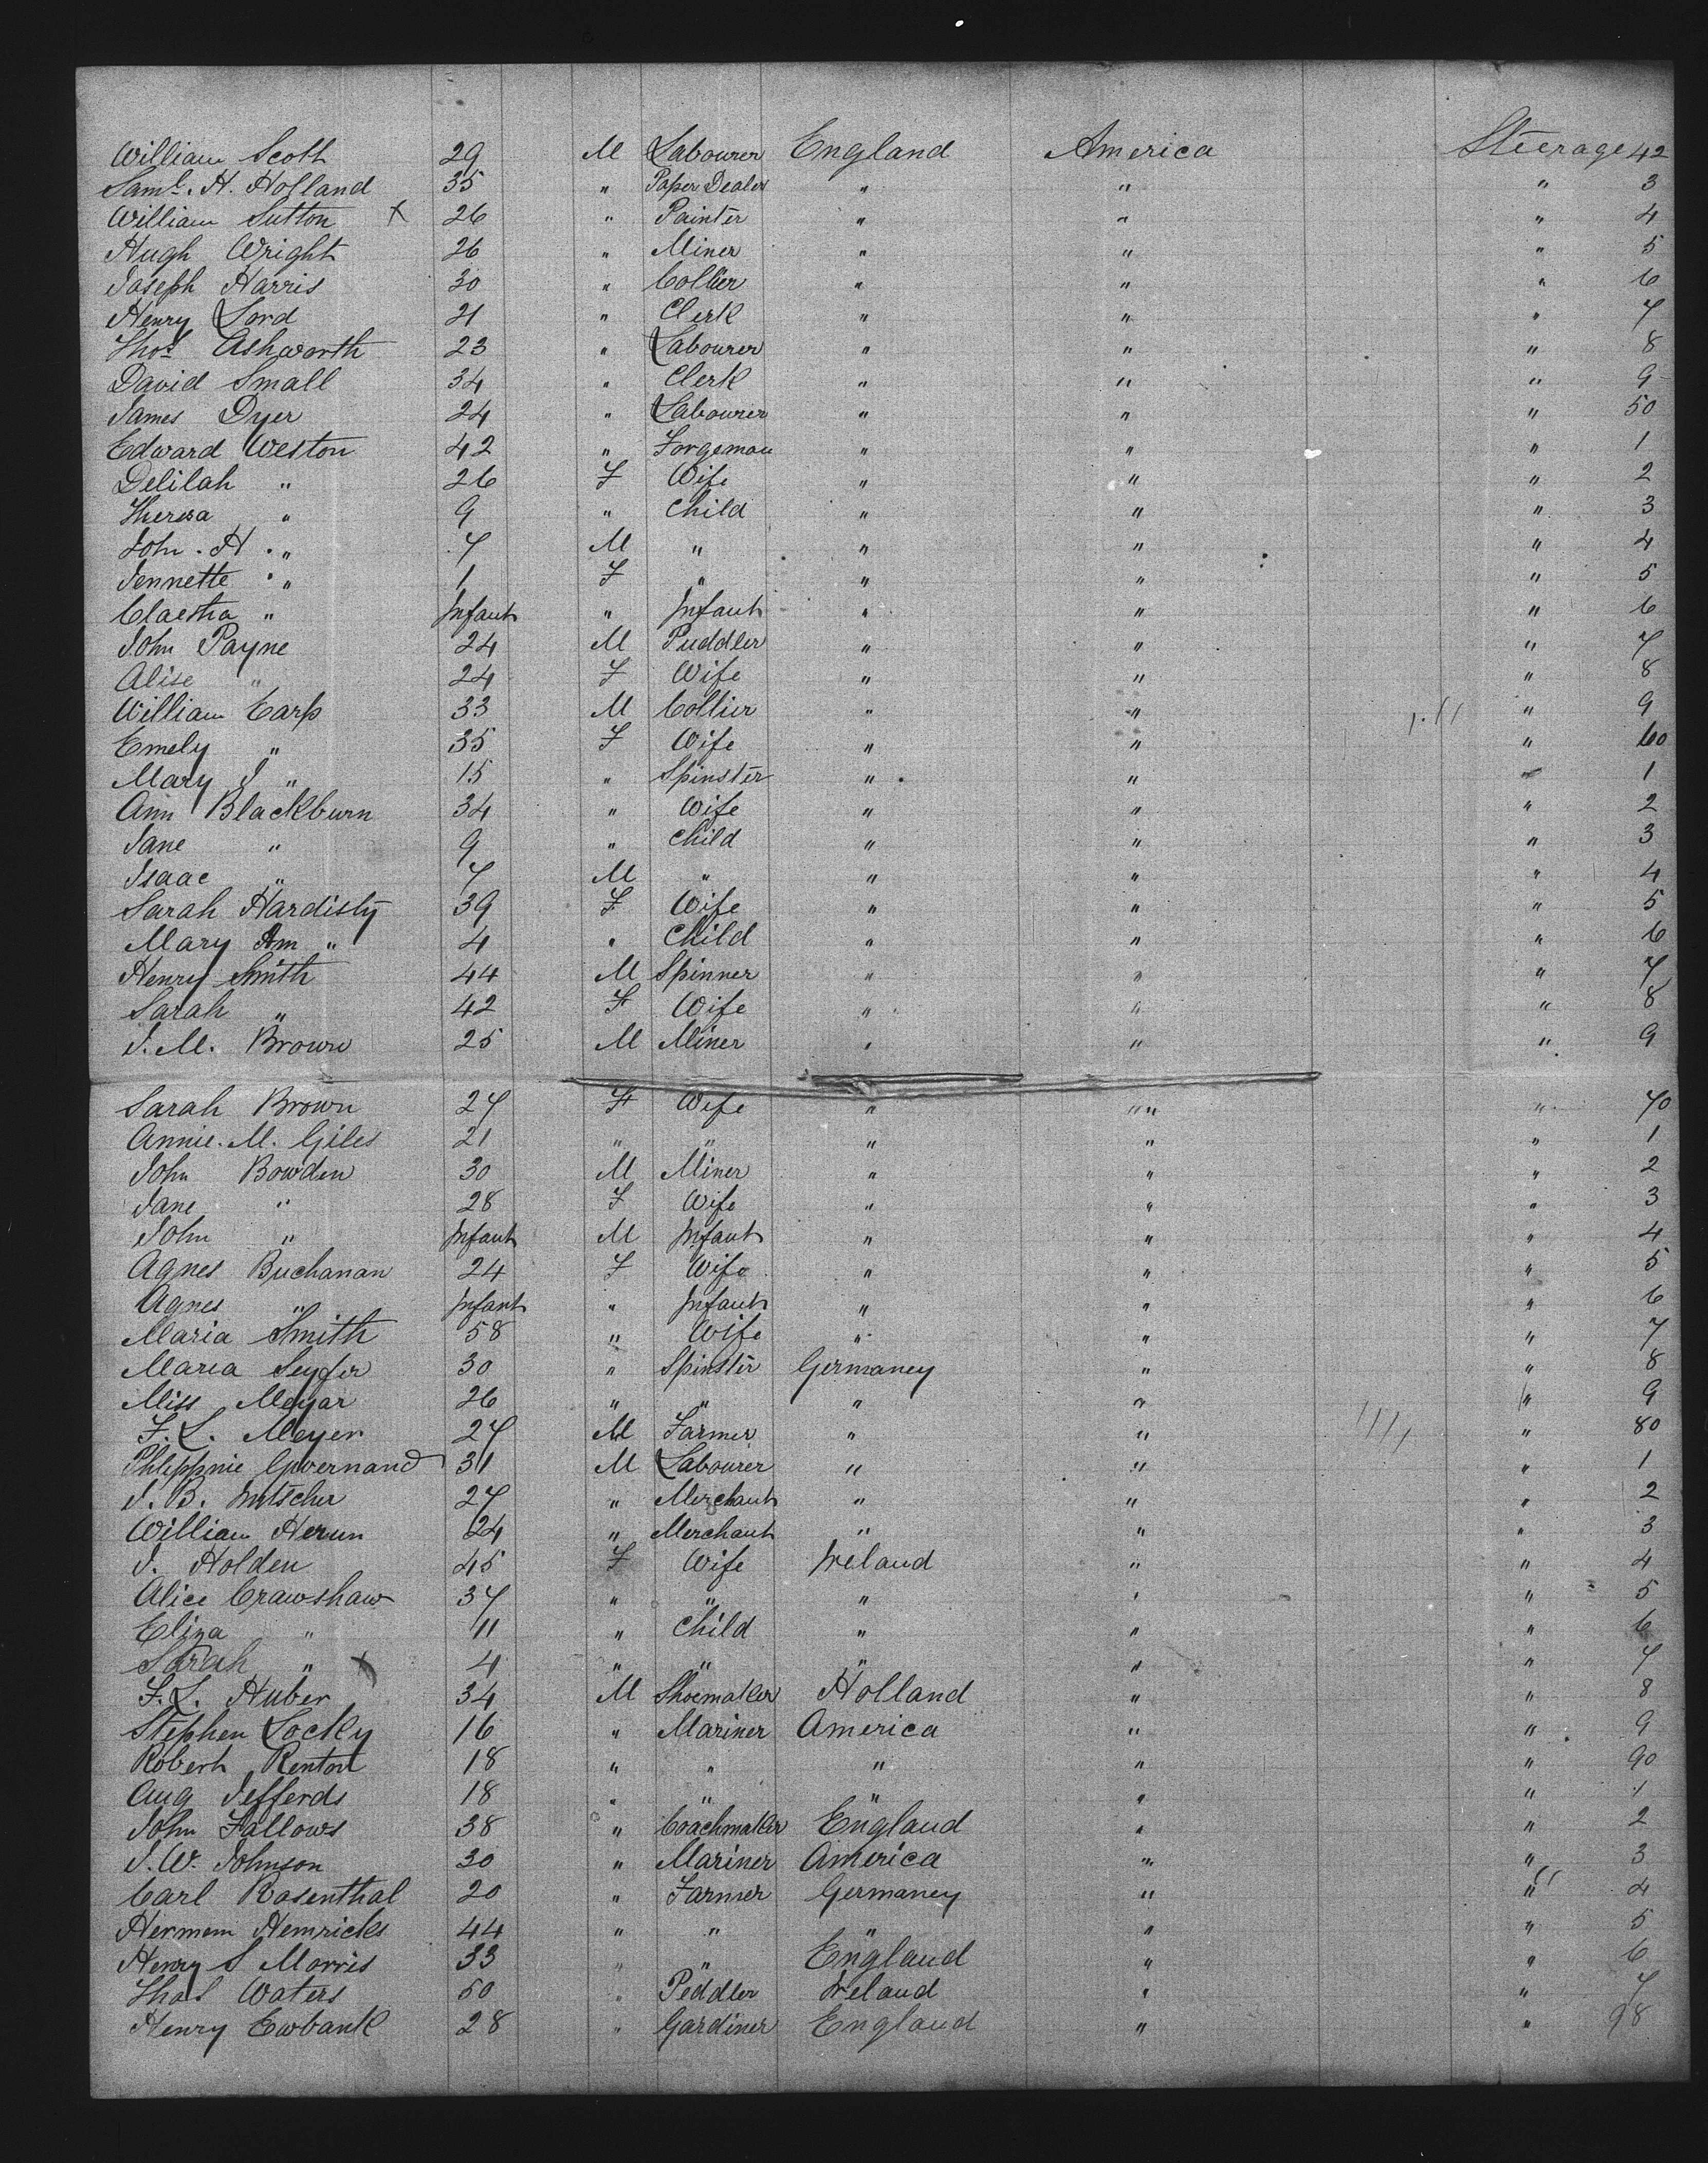 William Scott 29 M Labourer England America Steerage 42
Saml. H. Holland 35 " Paper Dealer " " " 3
William Sutton X 26 " Painter " " " 4
Hugh Wright 26 " Miner " " " 5
Joseph Harris 30 " Collier " " " 6
Henry Lord 21 " Clerk " " " 7
Thos Ashworth 23 " Labourer " " " 8
David Small 34 " Clerk " " " 9
James Dyer 24 " Labourer " " " 50
Edward Weston 42 " Forgeman " " " 1
Delilah " 26 F Wife " " " 2
Theresa " 9 " Child " " " 3
John. H. " 7 M " " " " 4
Jennette " 1 F " " " " 5
" Infant " Infant " " " 6
John Payne 24 M Puddler " " " 7
Alise " 24 F Wife " " " 8
William Earp 33 M Collier " " " 9
Emely " 35 F Wife " " " 60
Mary J " 15 " Spinster " " " 1
Ann Blackburn 34 " Wife " " " 2
Jane " 9 " Child " " " 3
Isaac " 7 M " " " " 4
Sarah Hardisty 39 F Wife " " " 5
Mary Ann " 4 " Child " " " 6
Henry Smith 44 M Spinner " " " 7
Sarah " 42 F Wife " " " 8
J. M. Brown 25 M Miner " " " 9
Sarah Brown 27 F Wife " " " 70
Annie. M. Giles 21 " " " " " 1
John Bowden 30 M Miner " " " 2
Jane " 28 F Wife " " " 3
John " Infant M Infant " " " 4
Agnes Buchanan 24 F Wife " " " 5
Agnes " Infant " Infant " " " 6
Maria Smith 58 " Wife " " " 7
Maria 30 " Spinster Germaney " " 8
Miss Meyar 26 " " " " " 9
F. L. Meyer 27 M Farmer " " " 80
31 M Labourer " " " 1
J. B. 27 " Merchant " " " 2
William 24 " Merchant " " " 3
J. Holden 45 F Wife Ireland " " 4
Alice Crawshaw 37 " " " " " 5
Eliza " 11 " Child " " " 6
Sarah " X 4 " " " " " 7
F. L. Huber 34 M Shoemaker Holland " " 8
Stephen Locky 16 " Mariner America " " 9
Robert Renton 18 " " " " " 90
Aug Jefferds 18 " " " " " 1
John Fallows 38 " Coachmaker England " " 2
J. W. Johnson 30 " Mariner America " " 3
Carl Rosenthal 20 " Farmer Germaney " " 4
Hermem Hemricks 44 " " " " " 5
Henry S Morris 33 " " England " " 6
Thos Waters 50 " Peddler Ireland " " 7
Henry Ewbank 28 " Gardiner England " " 98